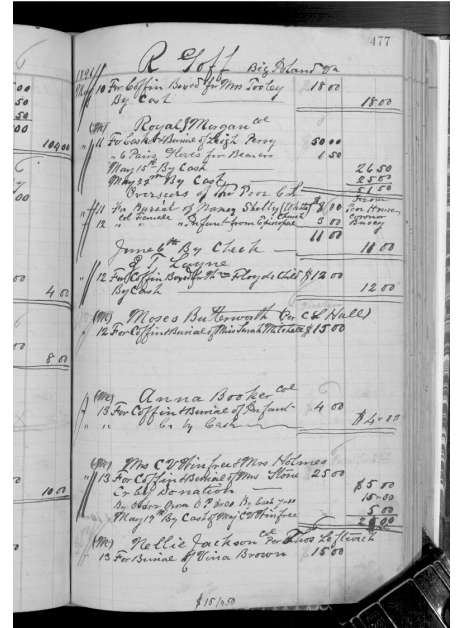 477
R Goff Big Island Va
May 10 For Coffin Boxed for Mrs Tooley 18 00
By Cash 18 00
(Mc) Royal J Morgan col
" 11 For Casket & Burial of Leigh Perry 50 00
" 6 Pairs Gloves for Bearers 1 50
May 15th By Cash 26 50
May 29th By Cash 25 00
Overseers of the Poor 51 50
" 11 For Burial of Nancy Shelly (White) $8 00 Poor House
12 col Female " " Infant from Episcopal Church 3 00 coronor
11 00
June 6th By Check 11 00
E T Layne
" 12 For Coffin Boxed for Floyds Child $12 00
By Cash 12 00
(Mc) Moses Butterworth (Per C L Hall)
12 For Coffin & Burial of Miss Sarah Mitchell $15 00
(Mc) Anna Booker col
" 13 For Coffin & Burial of Infant 4 00
" " Cr by Cash $4.00
(Mc) Mrs C V Winfree & Mrs Holmes
" 13 For Coffin & Burial of Mrs Stone 25 00
Cr By Donation $5 00
By Cash 7.00 15.00
May 19th By Cash of Maj C V Winfree 5 00
25 00
(Mc) Nellie Jackson col Per Thos Leftwich
13 For Burial of Vina Brown 15 00
$15/950
104 00
4 00
8 00
10 00